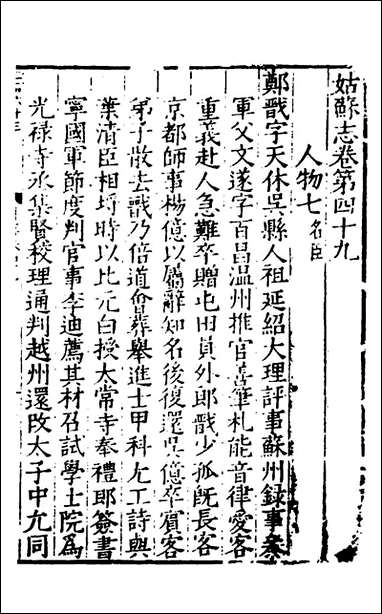 姑蘇志卷第四十九
人物七名臣
鄭戩字天休吳縣人祖延紹大理評事蘇州録事參
軍父文遂字百昌温州推官善筆札能音律愛客
重義赴人急難卒贈屯田員外郎戩少孤既長客
京都師事楊億以屬辭知名後復還吳億卒賓客
弟子散去戩乃倍道會葬舉進士甲科尤工詩與
葉清臣相埒時以比元白授太常寺奉禮郎簽書
寧國軍節度判官事李迪薦其材召試學士院爲
光禄寺丞集賢校理通判越州還改太子中允同